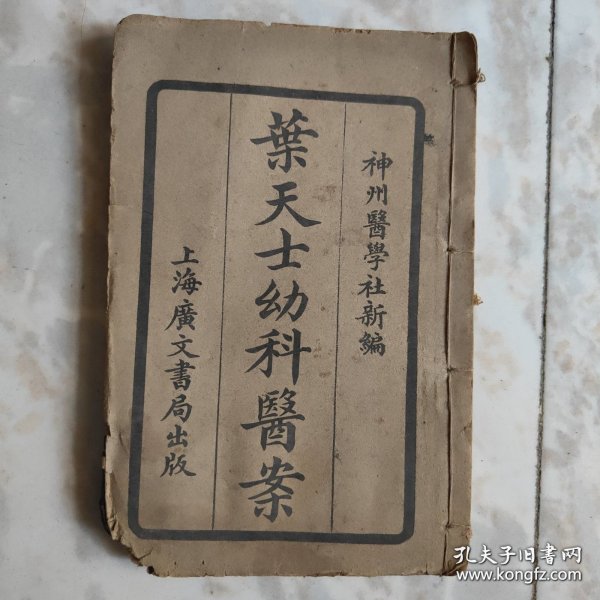 神州醫學社新編
葉天士幼科醫案
上海廣文書局出版
孔夫子旧书网
www.kongfz.com